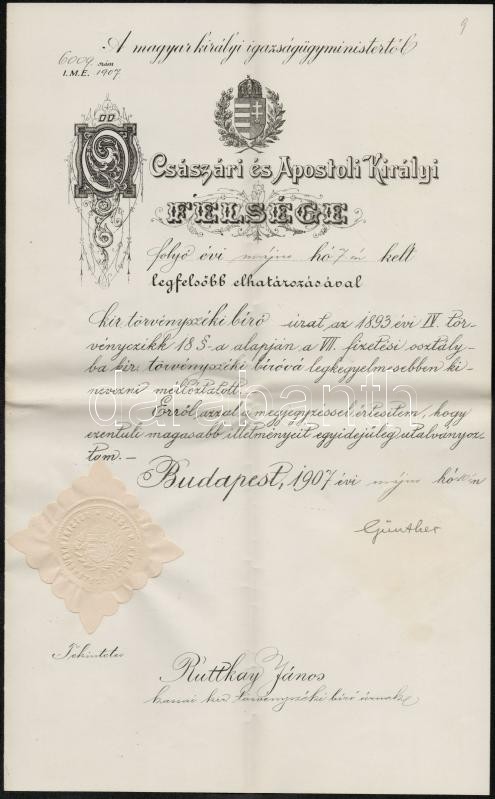 9
A magyar királyi igazságügyministertől
6009. szám
I.M.E. 1907.
Ő Császári és Apostoli Királyi
FELSÉGE
folyó évi május hó 7-én kelt
legfelsőbb elhatározásával
kir. törvényszéki bíró úrat, az 1893 évi IV. tör-
vényczikk 18 §-a alapján a VII. fizetési osztály-
ba kir. törvényszéki bíróvá legkegyelmesebben ki-
nevezni méltóztatott.
Erről azzal a megjegyzéssel értesítem, hogy
ezentúli magasabb illetményeit egyidejűleg utalványoz-
tom. –
Budapest, 1907 évi május hó én
Günther
Tekintetes
Ruttkay János
kassai kir törvényszéki bíró úrnak
darabanth